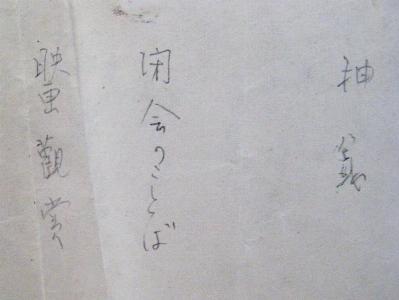 抽籤
閉会のことば
映画觀賞